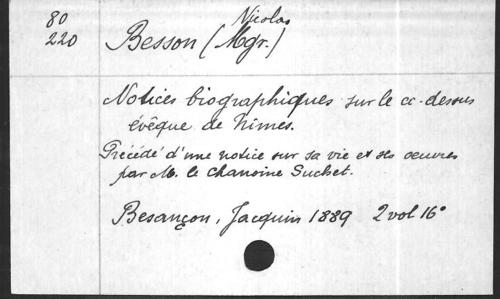 80
220
Nicolas
Besson (Mgr.)
Notices biographiques sur le ci-dessus
évêque de Nîmes.
Précédé d'une notice sur sa vie et ses oeuvres
par M. le Chanoine Suchet.
Besançon, Jacquin 1889 2 vol 16°